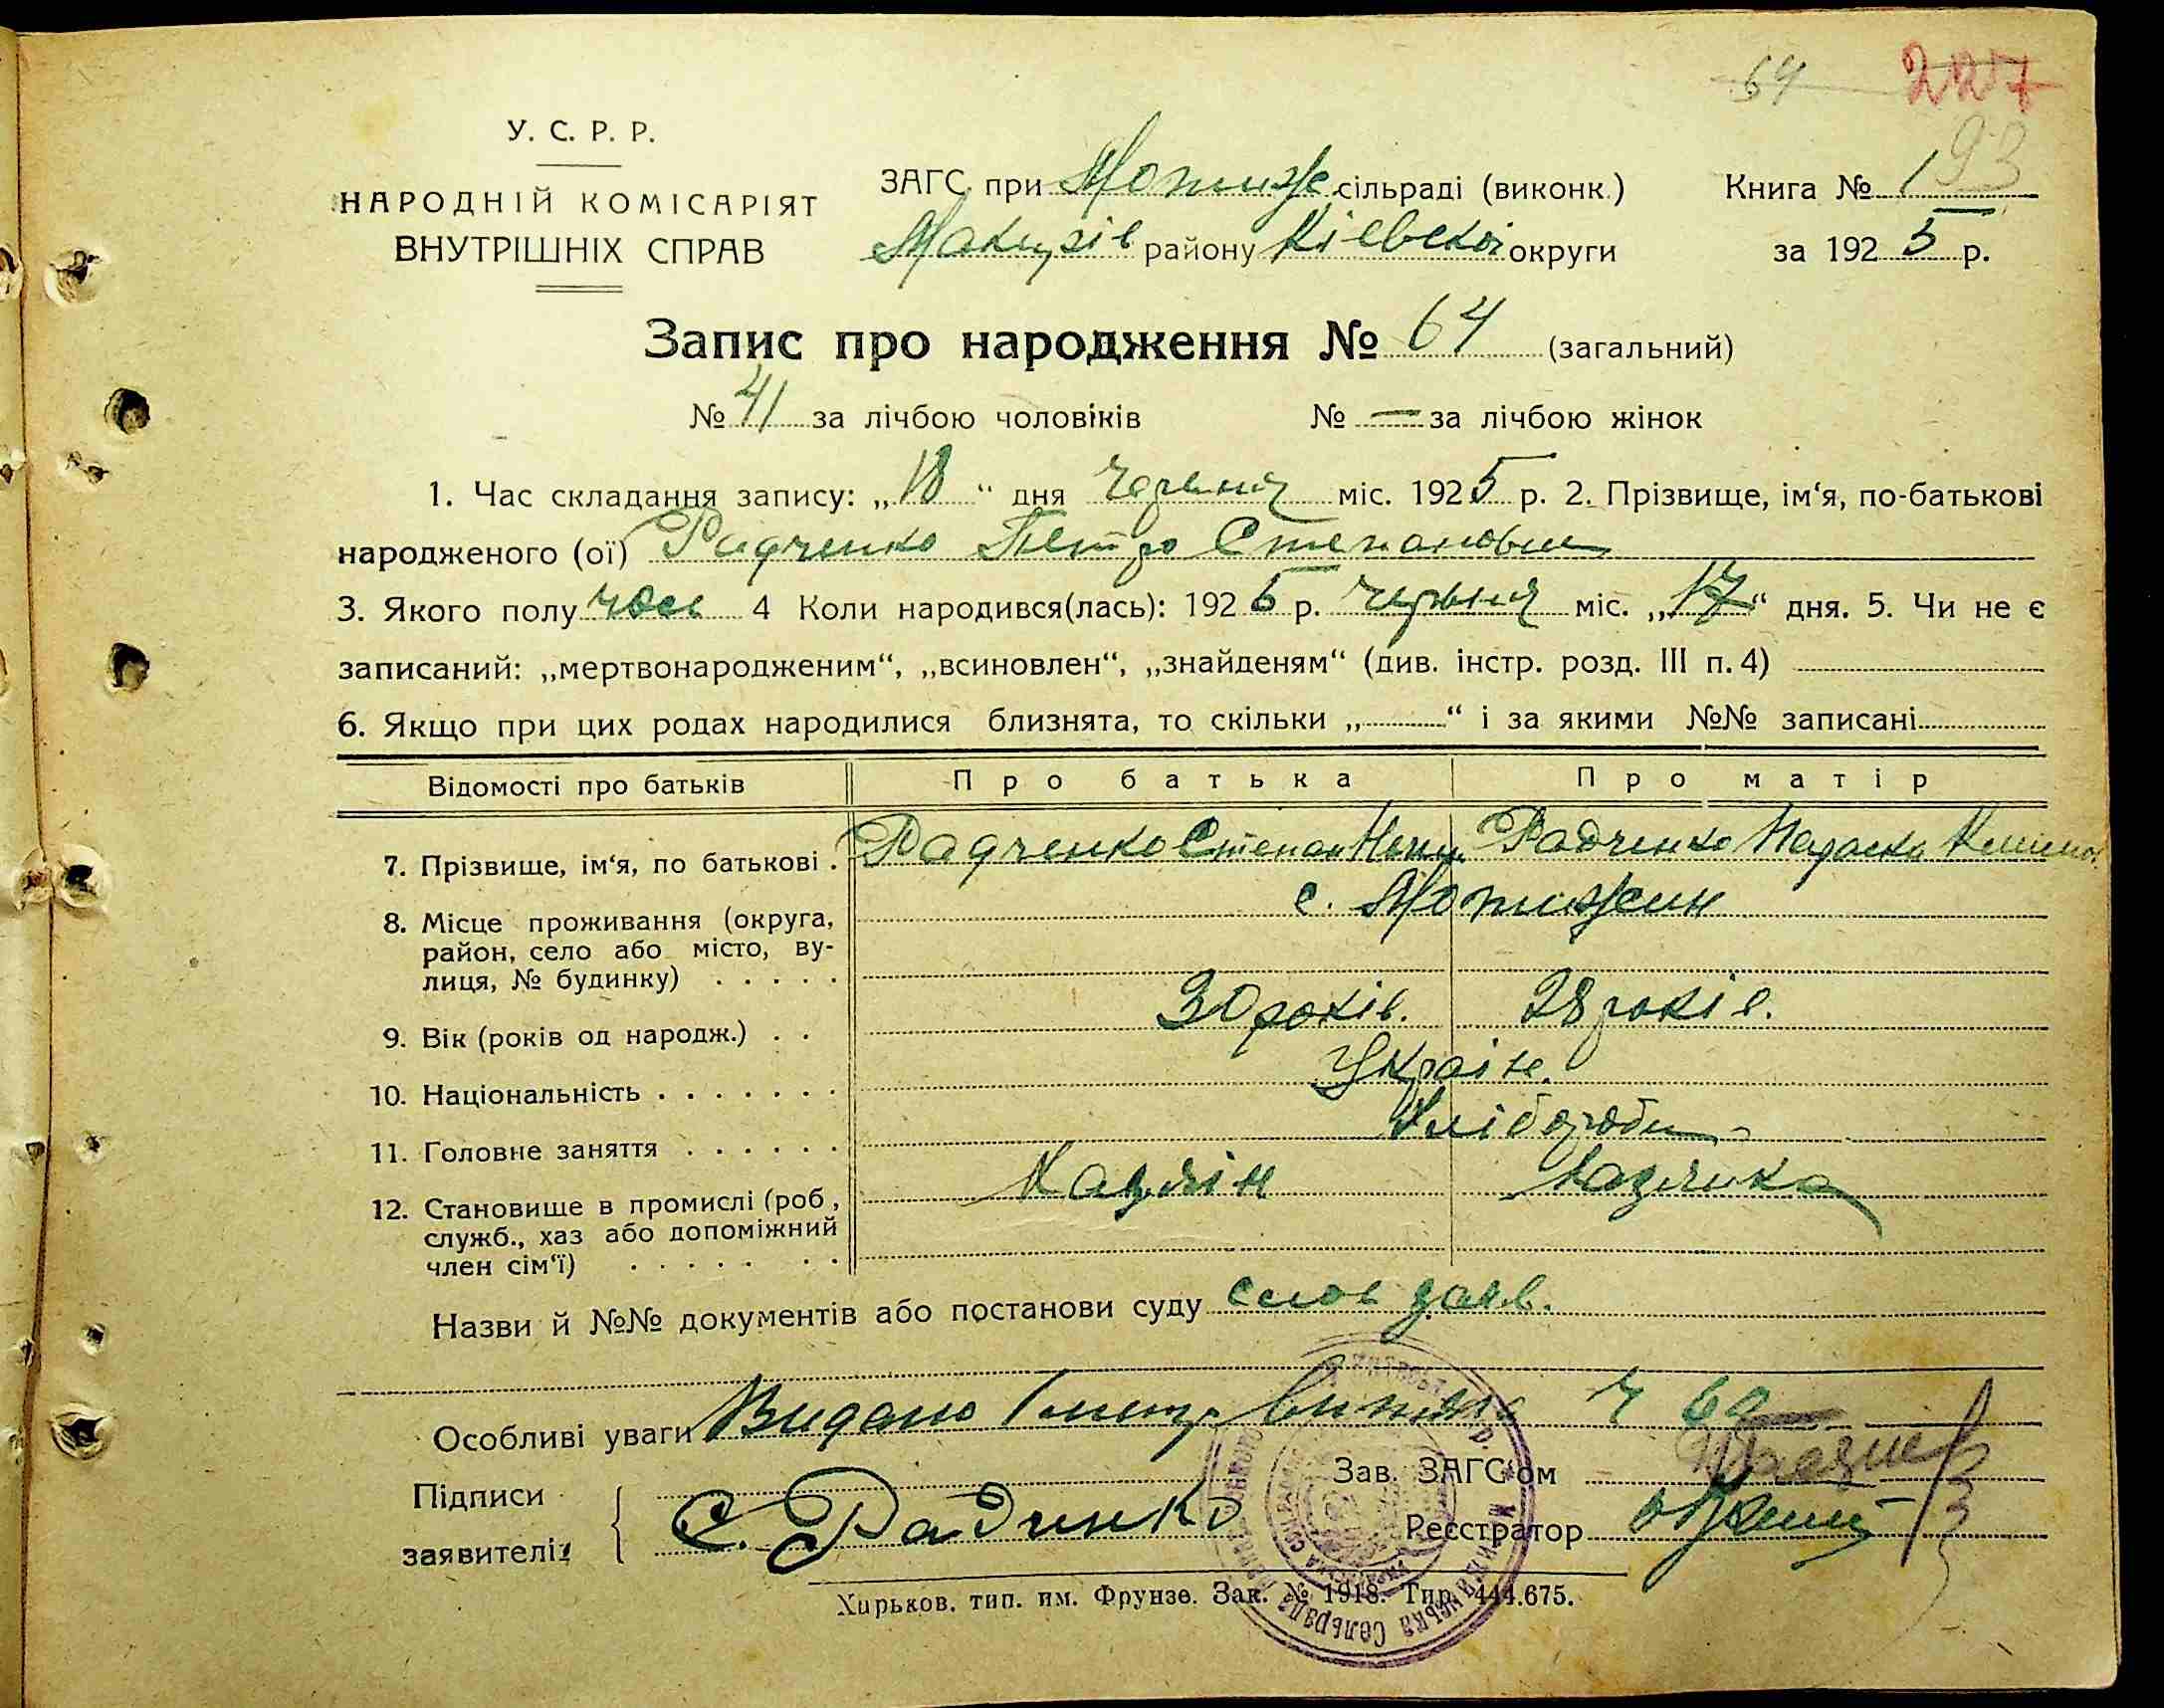 64 227
93
У. С. Р. Р.
НАРОДНІЙ КОМІСАРІЯТ
ВНУТРІШНІХ СПРАВ
ЗАГС при Мотиж сільраді (виконк.) Книга № 1
Макарів району Київской округи за 1925 р.
Запис про народження № 64 (загальний)
№ 41 за лічбою чоловіків № — за лічбою жінок
1. Час складання запису: „18“ дня червня міс. 1925 р. 2. Прізвище, ім‘я, по-батькові
народженого (ої) Радченко Петро Степанович
3. Якого полу чол 4 Коли народився(лась): 1925 р. червня міс. „17“ дня. 5. Чи не є
записаний: „мертвонародженим“, „всиновлен“, „знайденям“ (див. інстр. розд. III п. 4)
6. Якщо при цих родах народилися близнята, то скільки „ “ і за якими №№ записані
Відомості про батьків Про батька Про матір
7. Прізвище, ім‘я, по батькові . Радченко Степан Радченко Параска
8. Місце проживання (округа, с. Мотижин
район, село або місто, ву-
лиця, № будинку) . . . . .
9. Вік (років од народж.) . . 30 років. 28 років.
10. Національність . . . . . . . Україн.
11. Головне заняття . . . . . . Хлібороби
12. Становище в промислі (роб., Хазяїн хазяйка
служб., хаз або допоміжний
член сім‘ї) . . . . . . .
Назви й №№ документів або постанови суду слов заяв.
Особливі уваги Видано
Підписи Зав. ЗАГС‘ом
С. Радченко Реєстратор
заявителів
Сельрада
Харьков, тип. им. Фрунзе. Зак. № 1918. Тир. 444.675.